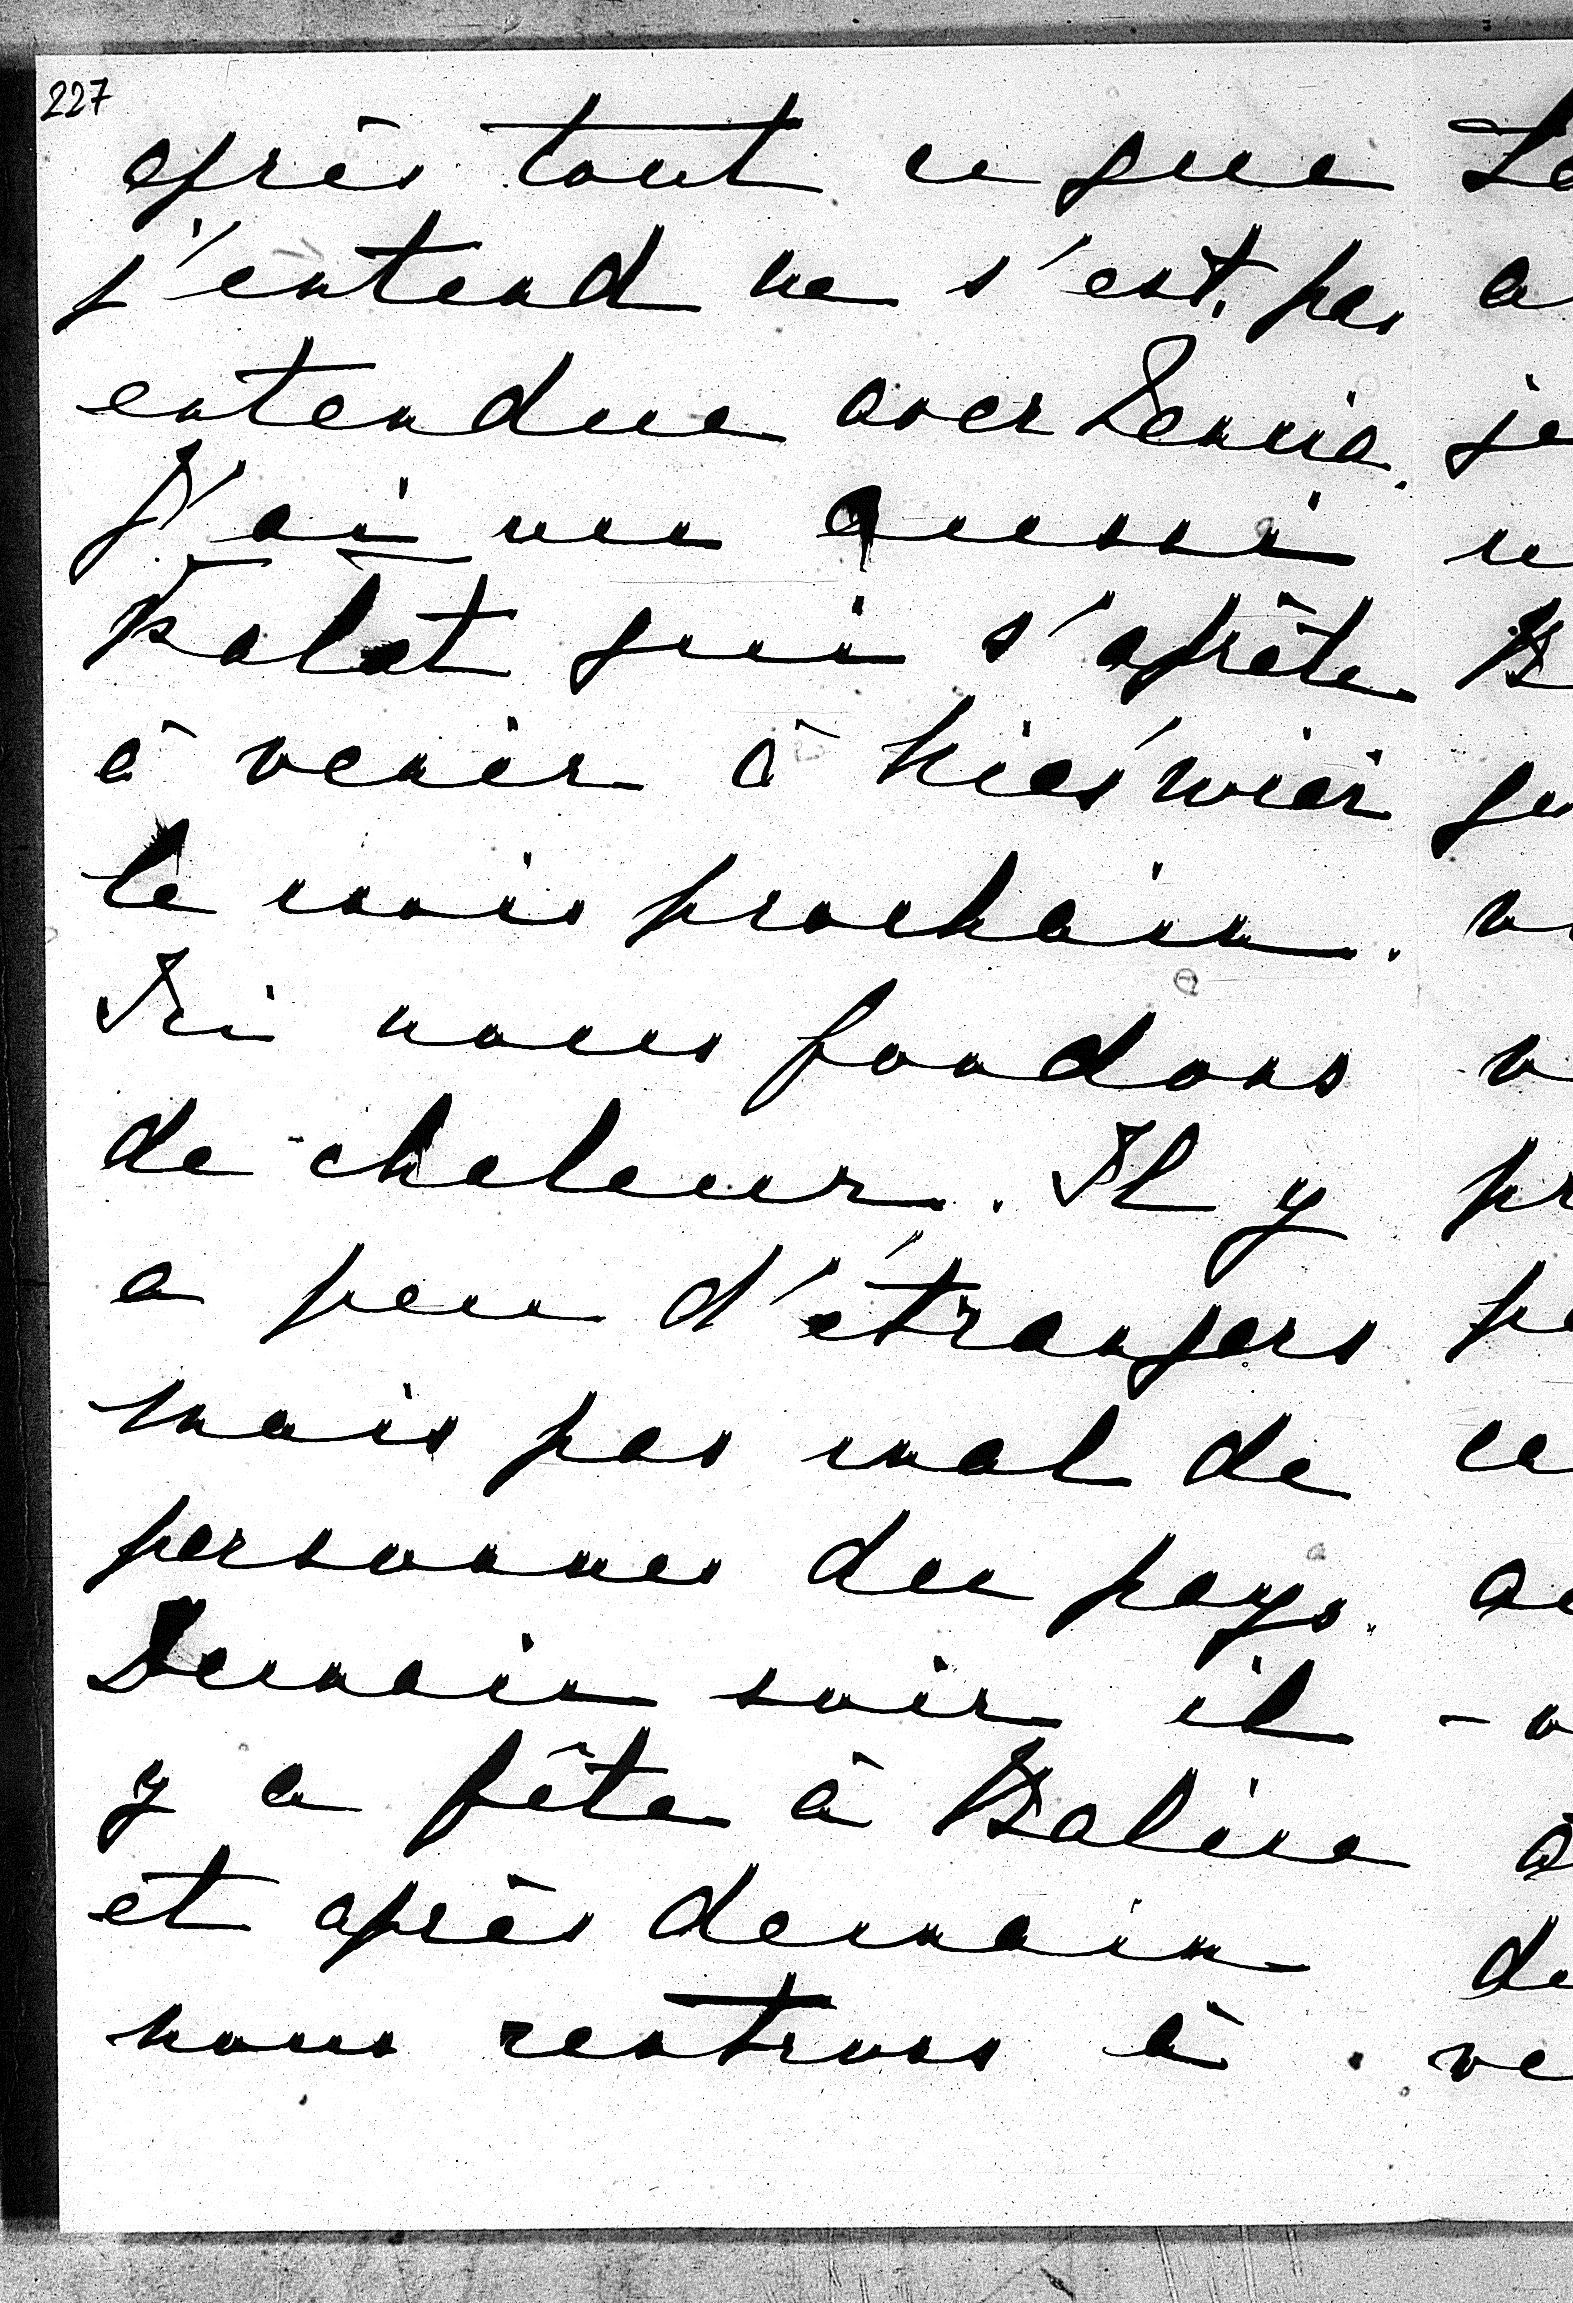 227
après tout ce que
j'entend ne s'est pas
entendue avec Dennis.
J'ai vu aussi
Balat qui s'aprête
à venir à Nieświer
le mois prochain.
Ici nous fondons
de chaleur. Il y
a peu d'étrangers
mais pas mal de
personnes du pays.
Demain soir il
y a fête à Balice
et après demain
nous rentrons à